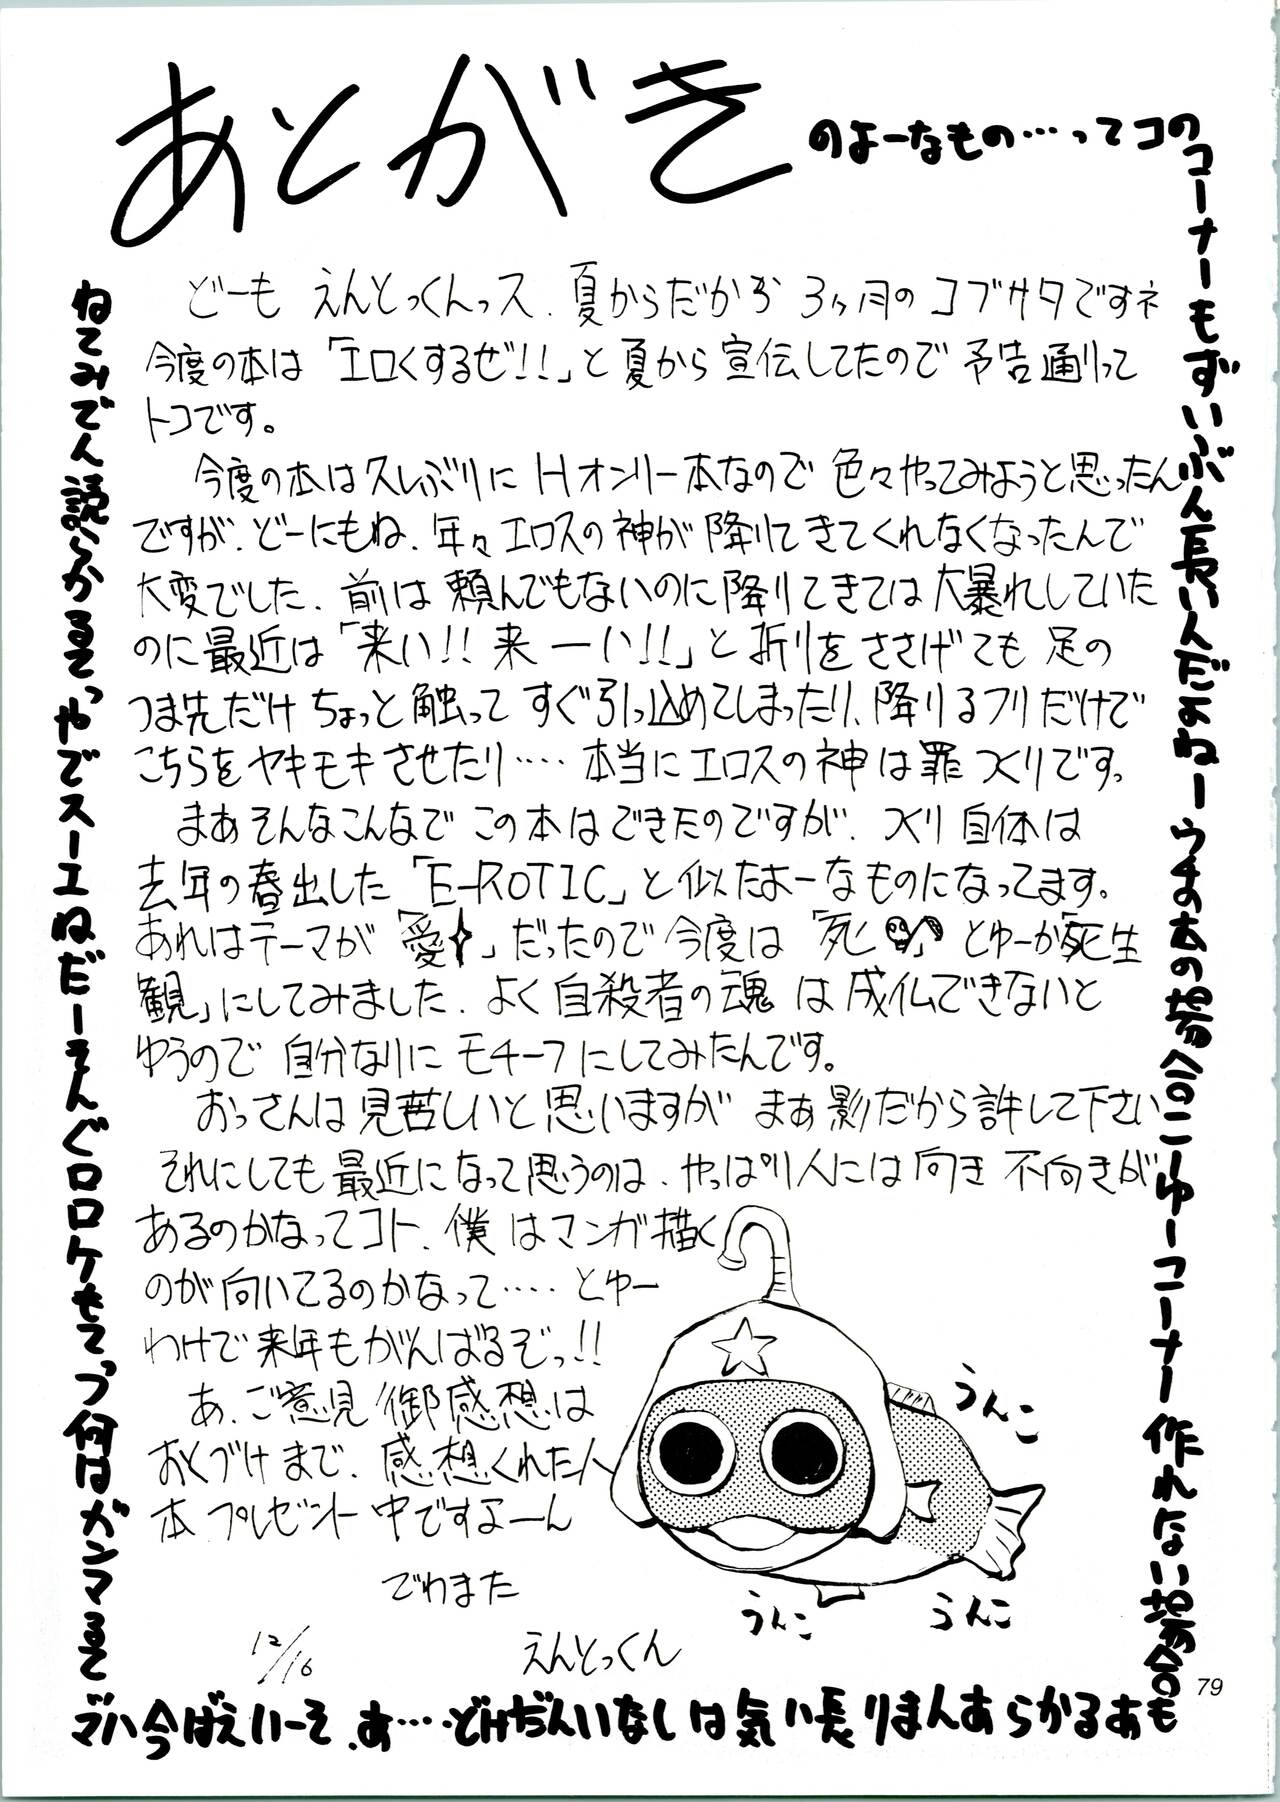 あとがき
のよーなもの…ってコの
コーナーもずいぶん長いんだよねーウチの本の場合こーゆーコーナー作れない場合も
あるからあんまり長い気はしないんだけど…あ、そーいえば今ハマ
ってるマンガは何つってもケロロぐんそーだねエースでやってるからみんな読んでみてね
どーも えんとっくんっス.夏からだから 3ヶ月のゴブサタですネ
今度の本は「エロくするぜ!!」と夏から宣伝してたので 予告通りって
トコです。
今度の本は久しぶりに Hオンリー本なので 色々やってみようと思ったん
ですが、どーにもね、年々エロスの神が降りてきてくれなくなったんで
大変でした、前は頼んでもないのに降りてきては大暴れしていた
のに最近は「来い!!来ーい!!」と祈りをささげても足の
つま先だけちょっと触ってすぐ引っ込めてしまったり、降りるフリだけで
こちらをヤキモキさせたり‥‥本当にエロスの神は罪つくりですっ
まあそんなこんなでこの本はできたのですが、つくり自体は
去年の春出した「E-ROTIC」と似たよーなものになってます。
あれはテーマが「愛」だったので今度は「死」とゆーか「死生
観」にしてみました、よく自殺者の魂は成仏できないと
ゆうので自分なりにモチーフにしてみたんです。
おっさんは見苦しいと思いますが まあ影だから許して下さい
それにしても最近になって思うのは、やっぱり人には向き不向きが
あるのかなってコト、僕はマンガ描く
のが向いてるのかなって‥‥とゆー
わけで来年もがんばるぞっ!!
あ、ご意見御感想は
おくづけまで、感想くれた人
本プレゼント中ですよーん
でわまた
12/16
えんとっくん
うんこ
うんこ
うんこ
79